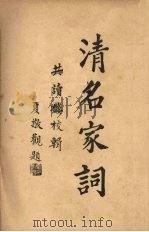 清名家詞
共讀樓校輯
夏敬觀題